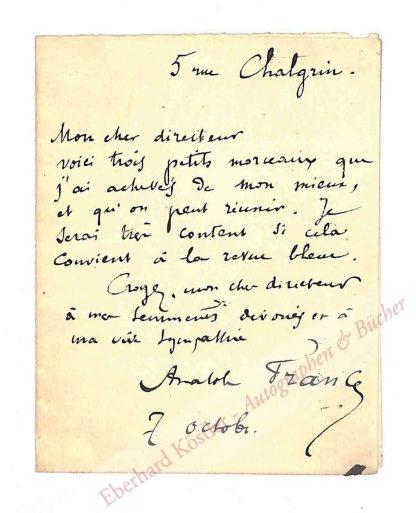 5 rue Chalgrin.
Mon cher directeur
voici trois petits morceaux que
j'ai achevés de mon mieux,
et qu'on peut réunir. Je
serai très content si cela
convient à la revue bleue.
Croyez, mon cher directeur
à mes sentiments dévoués et à
ma vive sympathie
Anatole France
7 octobr.
Eberhard Köstler - Autographen & Bücher